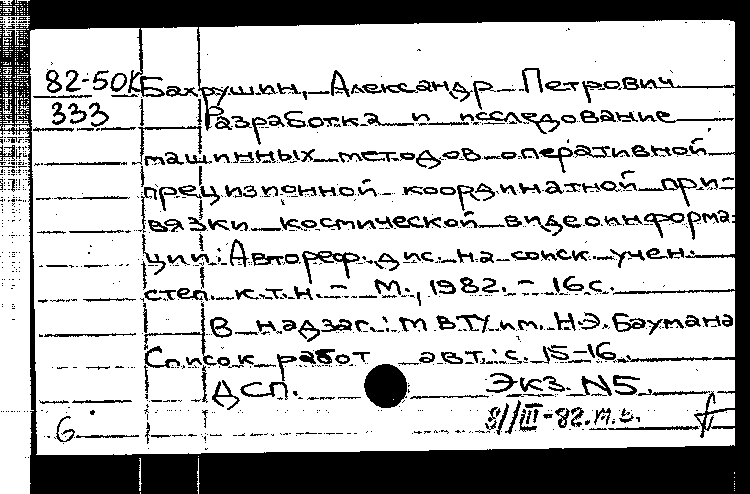 82-50К Бахрушин, Александр Петрович
333 Разработка и исследование
машинных методов оперативной
прецизионной координатной при-
вязки космической видеоинформа-
ции: Автореф. дис. на соиск. учен.
степ. к.т.н. - М., 1982. - 16 с.
В надзаг.: МВТУ им. Н.Э. Баумана
Список работ авт.: с. 15-16.
ДСП. Экз. N5.
6 8/III-82. т.в.